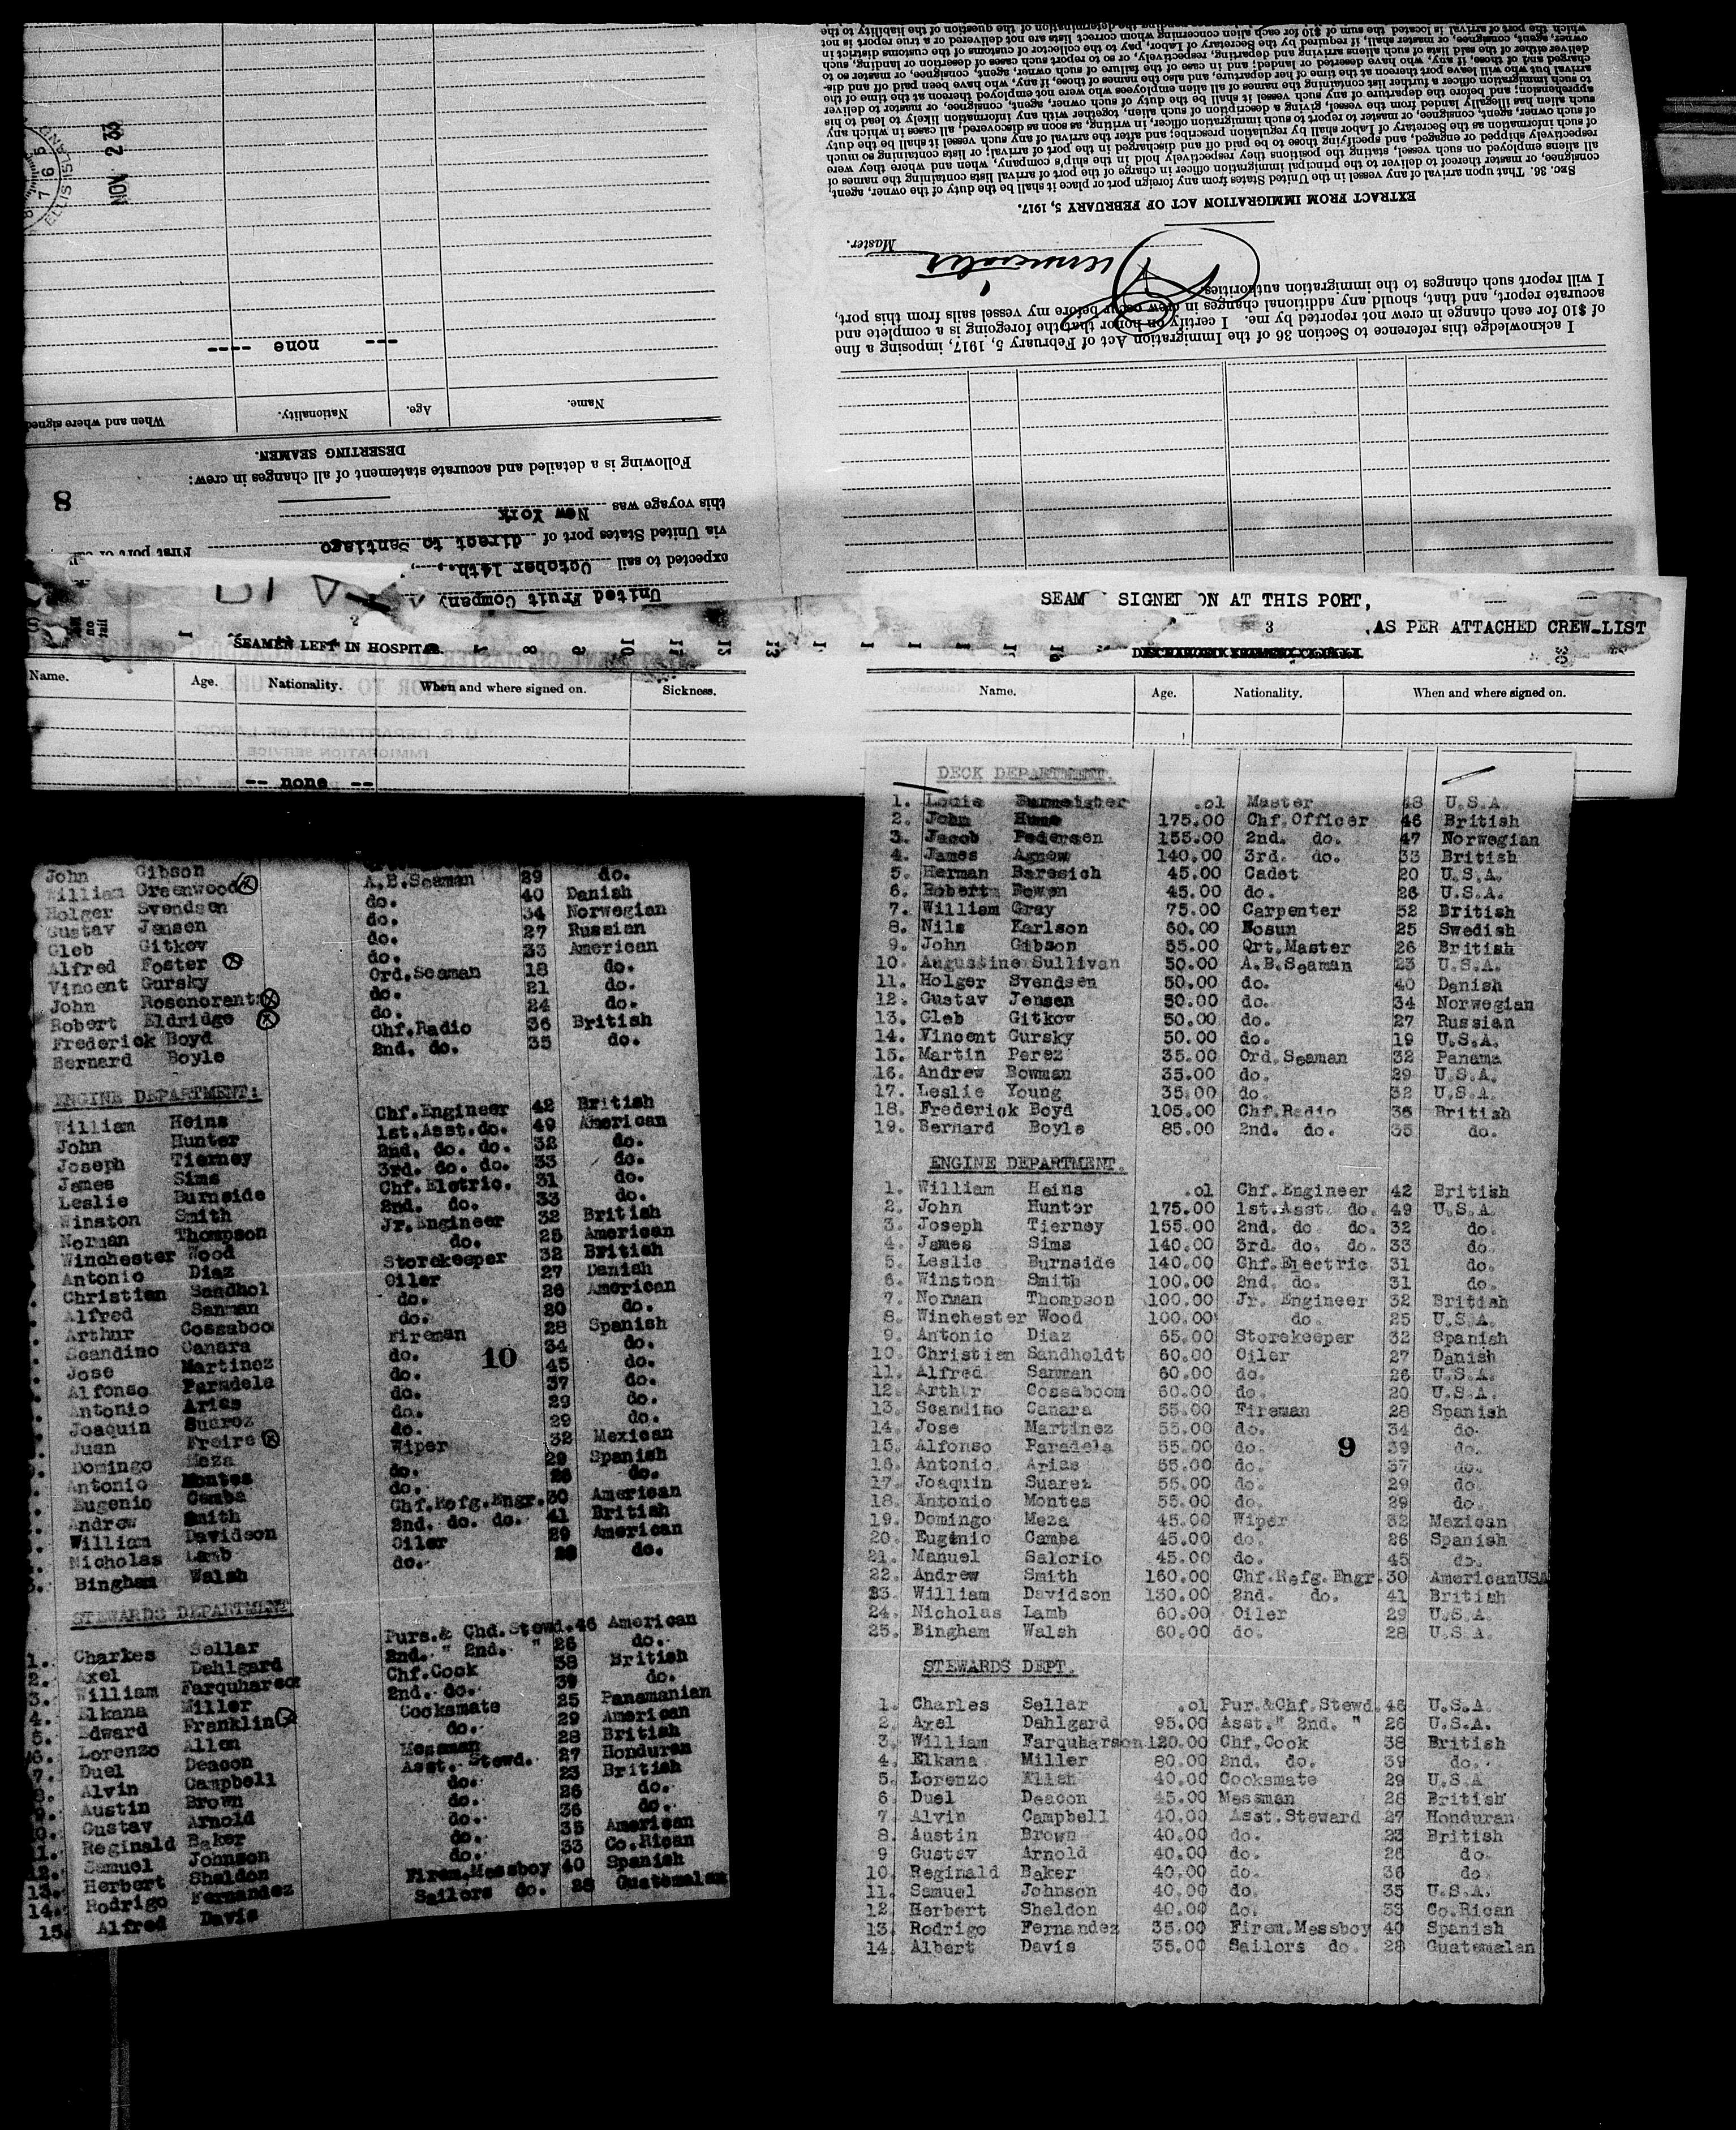 which the port of arrival is located the sum of $10 for each alien concerning whom correct lists are not delivered or a true report is not
owner, agent, consignee, or master shall, if required by the Secretary of Labor, pay to the collector of customs of the customs district in
deliver either of the said lists of such aliens arriving and departing, respectively, or so to report such cases of desertion or landing, such
charged and of those, if any, who have deserted or landed; and in case of the failure of such owner, agent, consignee, or master so to
arrival but who will leave port thereon at the time of her departure, and also the names of those, if any, who have been paid off and dis-
to such immigration officer a further list containing the names of all alien employees who were not employed thereon at the time of the
apprehension; and before the departure of any such vessel it shall be the duty of such owner, agent, consignee, or master to deliver
such alien has illegally landed from the vessel, giving a description of such alien, together with any information likely to lead to his
of such owner, agent, consignee, or master to report to such immigration officer, in writing, as soon as discovered, all cases in which any
of such information as the Secretary of Labor shall by regulation prescribe; and after the arrival of any such vessel it shall be the duty
respectively shipped or engaged, and specifying those to be paid off and discharged in the port of arrival; or lists containing so much
all aliens employed on such vessel, stating the positions they respectively hold in the ship's company, when and where they were
consignee, or master thereof to deliver to the principal immigration officer in charge of the port of arrival lists containing the names of
SEC. 36. That upon arrival of any vessel in the United States from any foreign port or place it shall be the duty of the owner, agent,
EXTRACT FROM IMMIGRATION ACT OF FEBRUARY 5, 1917.
Master.
I will report such changes to the immigration authorities.
accurate report, and that, should any additional changes in crew occur before my vessel sails from this port,
of $10 for each change in crew not reported by me. I certify on honor that the foregoing is a complete and
I acknowledge this reference to Section 36 of the Immigration Act of February 5, 1917, imposing a fine
ELLIS ISLAND
NOV 2 33
--- none ----
Name. Age. Nationality. When and where signed
DESERTING SEAMEN.
Following is a detailed and accurate statement of all changes in crew:
8
this voyage was New York
via United States port of direct to Santiago First port of
expected to sail October 14th.,
United Fruit Company
SEAMEN LEFT IN HOSPITAL.
Name. Age. Nationality. When and where signed on. Sickness.
-- none --
SEAM SIGNED ON AT THIS PORT,
3 ,AS PER ATTACHED CREW-LIST
Name. Age. Nationality. When and where signed on.
John Gibson
William Greenwood A.B.Seaman 29 do.
Holger Svendsen do. 40 Danish
Gustav Jensen do. 34 Norwegian
Gleb Gitkov do. 27 Russian
Alfred Foster do. 33 American
Vincent Gursky Ord.Seaman 18 do.
John Rosenorants do. 21 do.
Robert Eldridge do. 24 do.
Frederick Boyd Chf.Radio 36 British
Bernard Boyle 2nd. do. 35 do.
ENGINE DEPARTMENT:
William Heins Chf.Engineer 42 British
John Hunter 1st.Asst.do. 49 American
Joseph Tierney 2nd. do. do. 32 do.
James Sims 3rd. do. do. 33 do.
Leslie Burnside Chf.Eletric. 31 do.
Winston Smith 2nd. do. 33 do.
Norman Thompson Jr.Engineer 32 British
Winchester Wood do. 25 American
Antonio Diaz Storekeeper 32 British
Christian Sandhol Oiler 27 Danish
Alfred Sanman do. 26 American
Arthur Cossaboo do. 20 do.
Scandino Canara Fireman 28 Spanish
Jose Martinez do. 34 do.
Alfonso Paradela do. 45 do.
Antonio Arias do. 37 do.
Joaquin Suarez do. 29 do.
Juan Freire do. 29 do.
Domingo Meza Wiper 32 Mexican
Antonio Montes do. 29 Spanish
Eugenio Camba do. 26 do.
Andrew Smith Chf.Refg.Engr. 30 American
William Davidson 2nd. do. do. 41 British
Nicholas Lamb Oiler 29 American
Bingham Walsh do. 28 do.
10
STEWARDS DEPARTMENT
1. Charkes Sellar Purs.& Chd.Stewd. 46 American
2. Axel Dahlgard 2nd. " 2nd. " 26 do.
3. William Farquharso Chf.Cook 38 British
4. Elkana Miller 2nd. do. 39 do.
5. Edward Franklin Cooksmate 25 Panamanian
6. Lorenzo Allen do. 29 American
7. Duel Deacon Messman 28 British
8. Alvin Campbell Asst. Stewd. 27 Honduran
9. Austin Brown do. 23 British
10. Gustav Arnold do. 26 do.
11. Reginald Baker do. 36 do.
12. Samuel Johnson do. 35 American
13. Herbert Sheldon do. 33 Co.Rican
14. Rodrigo Fernandez Firem.Messboy 40 Spanish
15. Alfred Davis Sailors do. 28 Guatemalan
DECK DEPARTMENT.
1. Louis Burmeister .01 Master 48 U.S.A.
2. John Hume 175.00 Chf.Officer 46 British
3. Jacob Pedersen 155.00 2nd. do. 47 Norwegian
4. James Agnew 140.00 3rd. do. 33 British
5. Herman Barsich 45.00 Cadet 20 U.S.A.
6. Robert Bowen 45.00 do. 26 U.S.A.
7. William Gray 75.00 Carpenter 52 British
8. Nils Karlson 60.00 Bosun 25 Swedish
9. John Gibson 55.00 Qrt.Master 26 British
10. Augustine Sullivan 50.00 A.B.Seaman 23 U.S.A.
11. Holger Svendsen 50.00 do. 40 Danish
12. Gustav Jensen 50.00 do. 34 Norwegian
13. Gleb Gitkov 50.00 do. 27 Russian
14. Vincent Gursky 50.00 do. 19 U.S.A.
15. Martin Perez 35.00 Ord.Seaman 32 Panama
16. Andrew Bowman 35.00 do. 29 U.S.A.
17. Leslie Young 35.00 do. 32 U.S.A.
18. Frederick Boyd 105.00 Chf.Radio 36 British
19. Bernard Boyle 85.00 2nd. do. 35 do.
ENGINE DEPARTMENT.
1. William Heins .01 Chf.Engineer 42 British
2. John Hunter 175.00 1st.Asst. do. 49 U.S.A.
3. Joseph Tierney 155.00 2nd. do do. 32 do.
4. James Sims 140.00 3rd. do. do. 33 do.
5. Leslie Burnside 140.00 Chf.Electric 31 do.
6. Winston Smith 100.00 2nd. do. 31 do.
7. Norman Thompson 100.00 Jr. Engineer 32 British
8. Winchester Wood 100.00 do. 25 U.S.A.
9. Antonio Diaz 65.00 Storekeeper 32 Spanish
10. Christian Sandholdt 60.00 Oiler 27 Danish
11. Alfred Sanman 60.00 do. 26 U.S.A.
12. Arthur Cossaboom 60.00 do. 20 U.S.A.
13. Scandino Canara 55.00 Fireman 28 Spanish
14. Jose Martinez 55.00 do. 34 do.
15. Alfonso Paradela 55.00 do. 39 do.
16. Antonio Arias 55.00 do. 37 do.
17. Joaquin Suarez 55.00 do. 29 do.
18. Antonio Montes 55.00 do. 29 do.
19. Domingo Meza 45.00 Wiper 32 Mexican
20. Eugenio Camba 45.00 do. 26 Spanish
21. Manuel Salorio 45.00 do. 45 do.
22. Andrew Smith 160.00 Chf.Refg.Engr. 30 AmericanUSA
23. William Davidson 130.00 2nd. do. 41 British
24. Nicholas Lamb 60.00 Oiler 29 U.S.A.
25. Bingham Walsh 60.00 do. 28 U.S.A.
9
STEWARDS DEPT.
1. Charles Sellar .01 Pur.&Chf.Stewd. 46 U.S.A.
2. Axel Dahlgard 95.00 Asst." 2nd. " 26 U.S.A.
3. William Farquharson 120.00 Chf.Cook 38 British
4. Elkana Miller 80.00 2nd. do. 39 do.
5. Lorenzo Allen 40.00 Cooksmate 29 U.S.A
6. Duel Deacon 45.00 Messman 28 British
7. Alvin Campbell 40.00 Asst.Steward 27 Honduran
8. Austin Brown 40.00 do. 23 British
9 Gustav Arnold 40.00 do. 26 do
10. Reginald Baker 40.00 do. 36 do
11. Samuel Johnson 40.00 do. 35 U.S.A.
12. Herbert Sheldon 40.00 do. 33 Co.Rican
13. Rodrigo Fernandez 35.00 Firem.Messboy 40 Spanish
14. Albert Davis 35.00 Sailors do. 28 Guatemalan